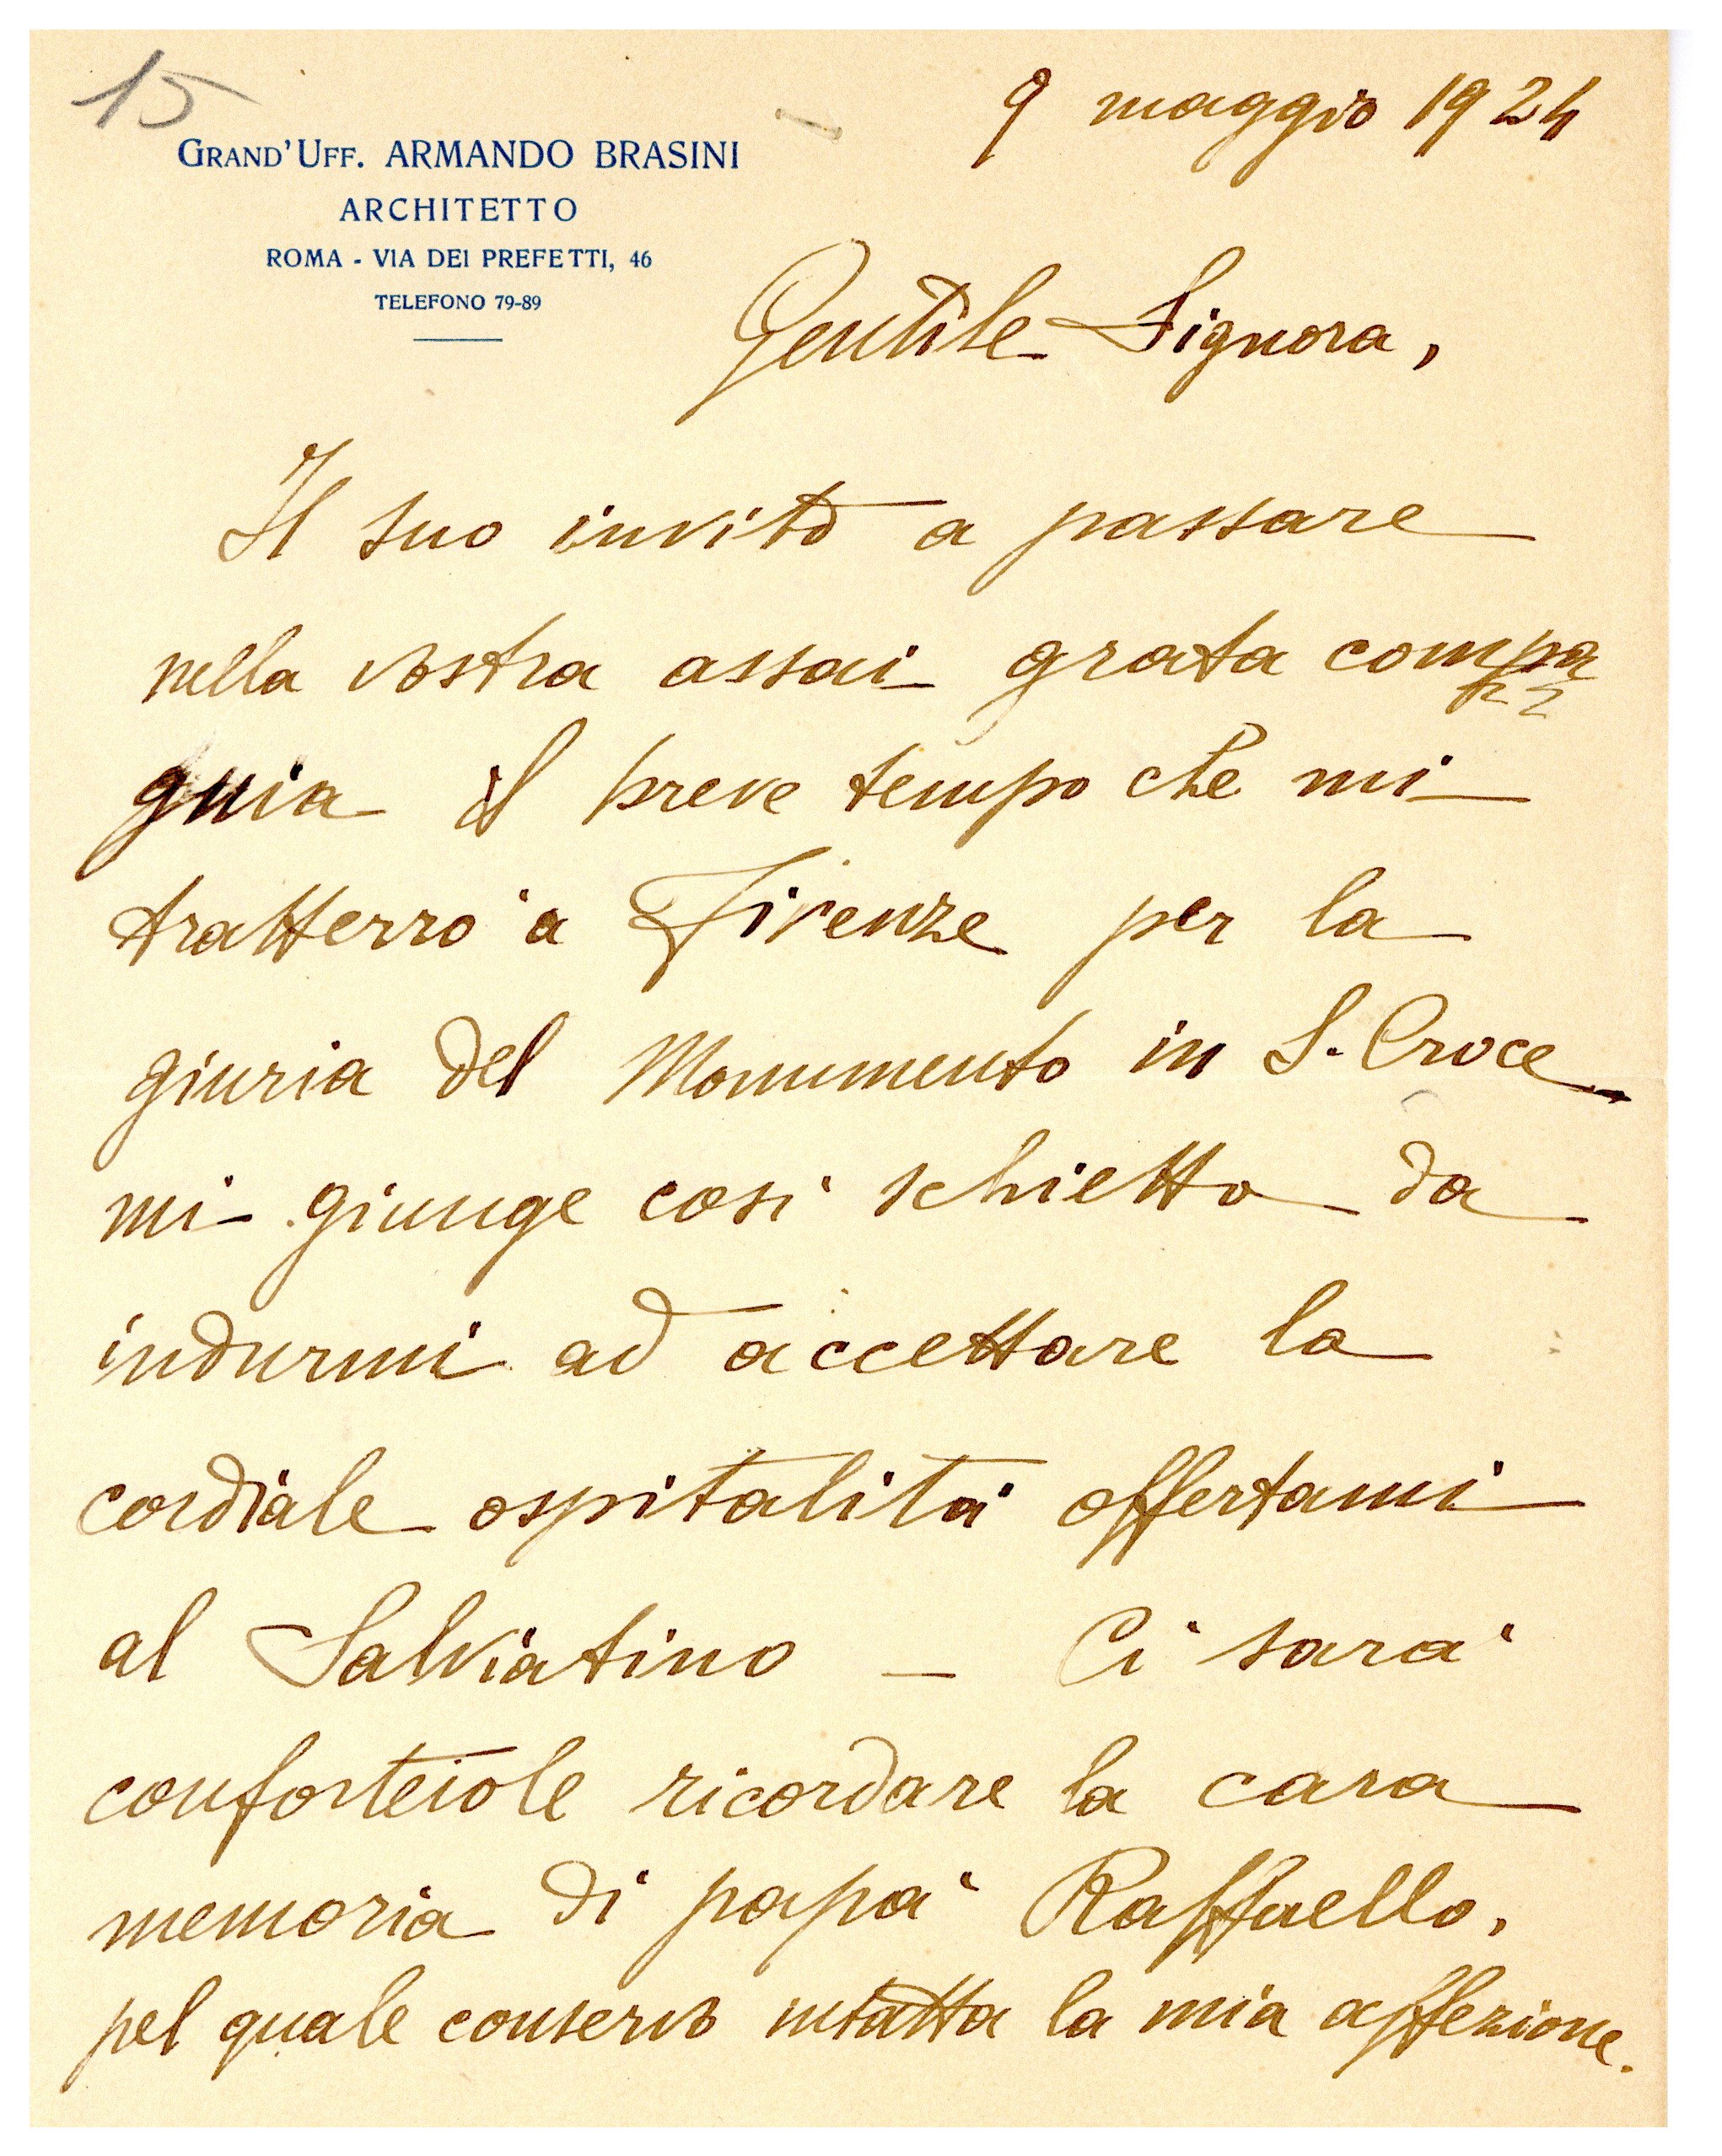 15
9 maggio 1924
GRAND'UFF. ARMANDO BRASINI
ARCHITETTO
ROMA - VIA DEI PREFETTI, 46
TELEFONO 79-89
Gentile Signora,
Il suo invito a passare
nella vostra assai grata compa
gnia il breve tempo che mi
tratterrò a Firenze per la
giuria del Monumento in S. Croce
mi giunge così schietto da
indurmi ad accettare la
cordiale ospitalità offertami
al Salviatino — Ci sarà
confortevole ricordare la cara
memoria di papà Raffaello,
pel quale conservo intatta la mia affezione.